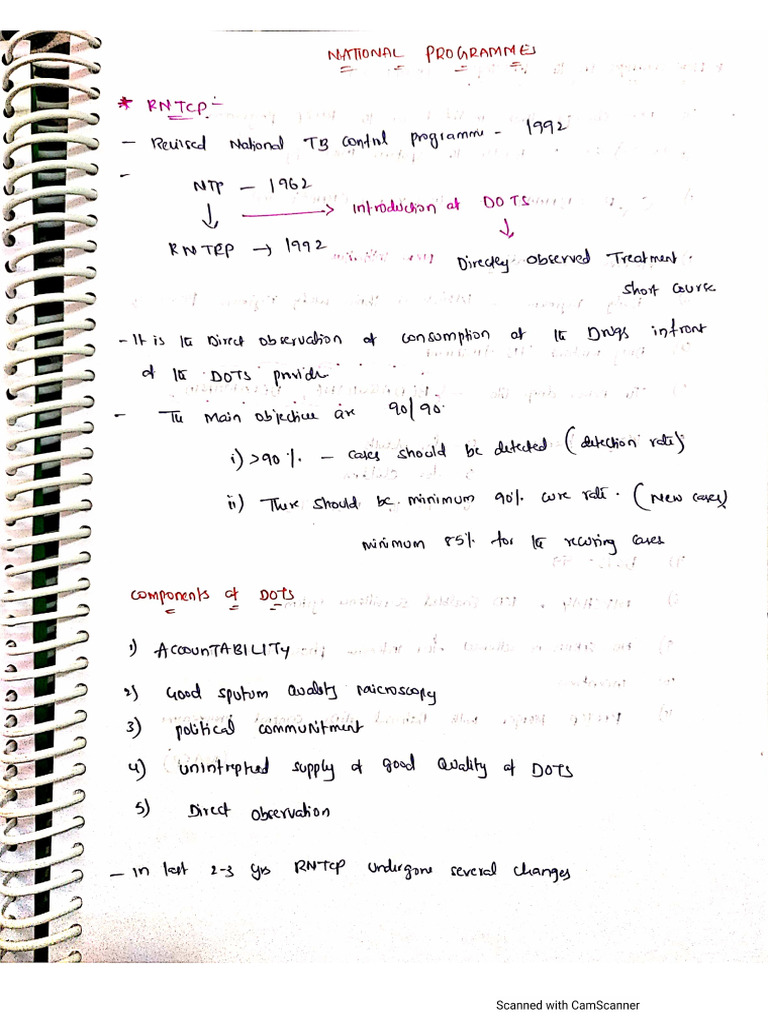 NATIONAL PROGRAMMES
* RNTCP :-
- Revised National TB Control programme - 1992
-
NTP - 1962
↓ → Introduction of DOTS
↓
RNTRP → 1992
Directley Observed Treatment.
Short Course
- It is the Direct observation of consumption of the Drugs infront
of the DOTS provider.
- The Main objective are 90/90.
i) >90%. - cases should be detected (detection rate)
ii) There should be minimum 90% cure rate. (New cases)
minimum 85% for the recuring cases
Components of DOTS
1) ACCOUNTABILITY
2) Good sputum Quality Microscopy
3) political communitment
4) unintrepted supply of good Quality of DOTS
5) Direct observation
- In last 2-3 yrs RNTCP undergone several changes
Scanned with CamScanner